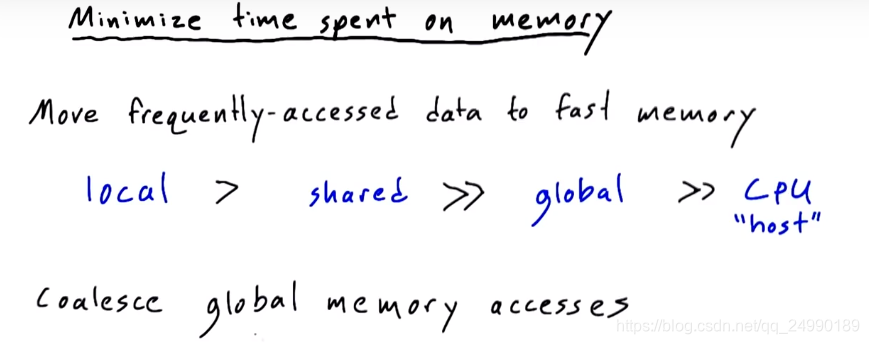 Minimize time spent on memory
Move frequently-accessed data to fast memory
local > shared >> global >> CPU
"host"
Coalesce global memory accesses
https://blog.csdn.net/qq_24990189